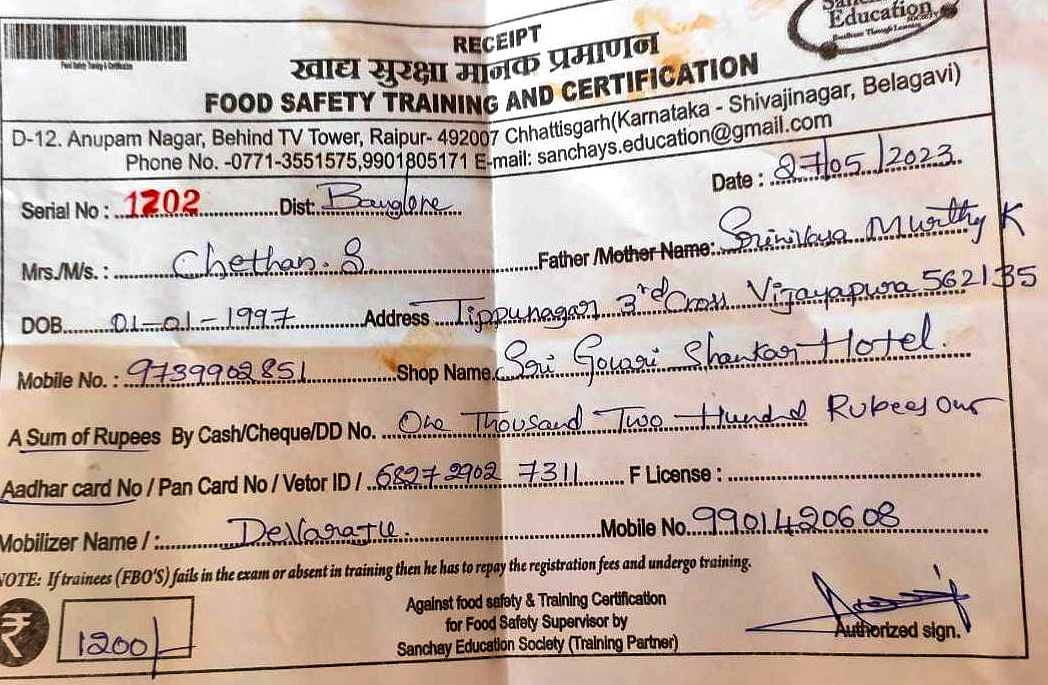 Education
RECEIPT
खाद्य सुरक्षा मानक प्रमाणन
FOOD SAFETY TRAINING AND CERTIFICATION
D-12. Anupam Nagar, Behind TV Tower, Raipur- 492007 Chhattisgarh(Karnataka - Shivajinagar, Belagavi)
Phone No. -0771-3551575,9901805171 E-mail: sanchays.education@gmail.com
Date : 27/05/2023
Serial No : 1202 Dist: Banglore
Mrs./M/s. : Chethan. S Father /Mother Name: Srinivasa Murthy K
DOB 01-01-1997 Address Tippunagar 3rd Cross Vijayapura 562135
Mobile No. : 9739902851 Shop Name. Sri Gowri Shankar Hotel.
A Sum of Rupees By Cash/Cheque/DD No. One Thousand Two Hundrd Rupees
Aadhar card No / Pan Card No / Vetor ID / 6827 2902 7311 F License :
Mobilizer Name / : DeVaraju. Mobile No. 9901420608
NOTE: If trainees (FBO'S) fails in the exam or absent in training then he has to repay the registration fees and undergo training.
Against food safety & Training Certification
for Food Safety Supervisor by
Sanchay Education Society (Training Partner)
₹ 1200/-
Authorized sign.